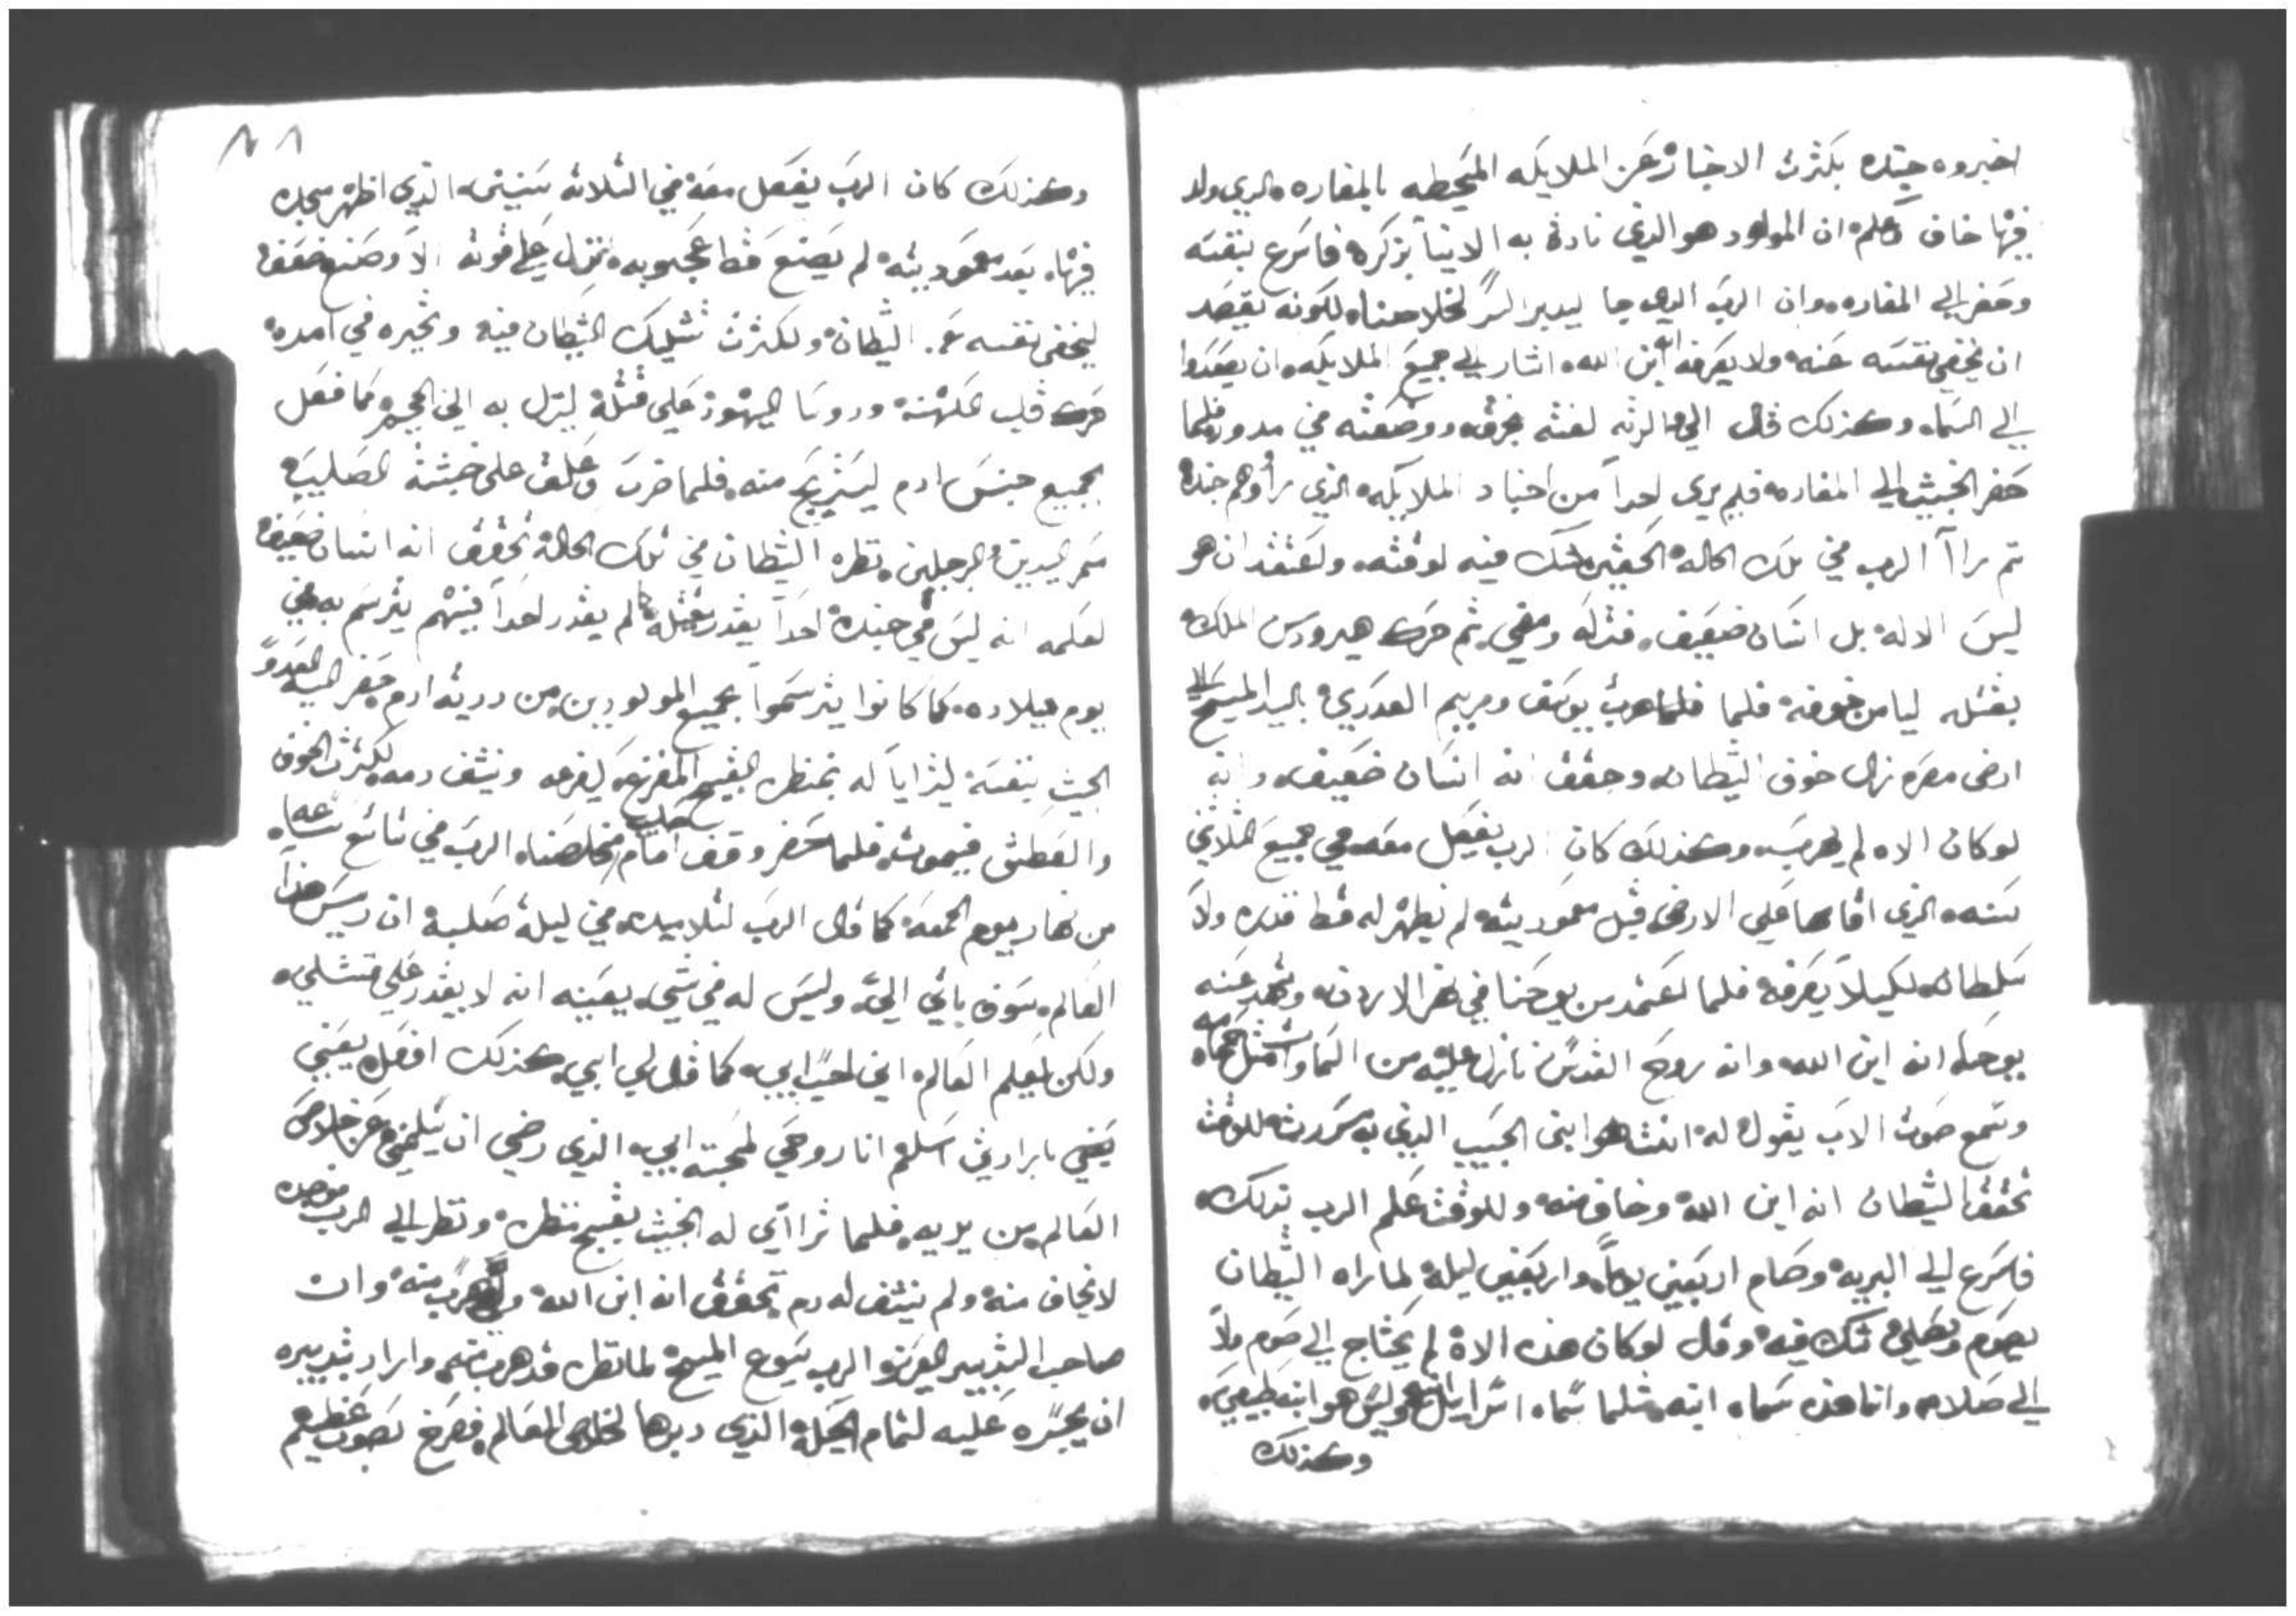 اخبروه جنده بكثرت الاخبار عن الملايكه المحيطه بالمغاره الدي ولد
فيها خاف وعلم ان المولود هو الذي نادة به الانبيا بذكره فاسرع بنفسه
وحضر الي المغاره وان الرب الدي جا ليدبر السر لخلاصنا لكونه يقصد
ان يخفي نفسه عنه ولا يعرفه انه ابن الله اشار الي جميع الملايكه ان يصعدوا
الي السماء وكذلك قال الي والدته لفته بخرق ووضعته في مدود فلما
حضر الخبيث الي المغاره فلم يرى احداً من اجناد الملايكه الذي راوهم جنده
تم راآ الرب في تلك الحاله الحقيره شك فيه لوقته واعتقد ان هو
ليس الاله بل انسان ضعيف فتركه ومضي ثم حرك هيرودس الملك
بقتله ليامن خوفه فلما فلما هرب يوسف ومريم العدري بالسيد المسيح الي
ارض مصر زال خوف الشيطان وحقق انه انسان ضعيف وانه
لو كان الاه لم يهرب وكذلك كان الرب يفعل معه في جميع الثلاثين
سنه الذي اقامها علي الارض قبل معموديته لم يظهر له قط قدره ولا
سلطان لكيلا يعرفه فلما اعتمد من يوحنا في نهر الاردن وشهد عنه
يوحنا انه ابن الله وانه روح القدس نازل عليه من السماوات مثل حمامه
وسمع صوت الاب يقول له انت هو ابني الحبيب الذي به سررت للوقت
تحقق الشيطان انه ابن الله وخاف منه وللوقت علم الرب بذلك
فاسرع الي البريه وصام اربعين يوماً واربعين ليله لما راه الشيطان
يصوم ويصلي شك فيه وقال لو كان هذه الاه لم يحتاج الي صوم ولا
الي صلاه وانما هذه سماه ابنه مثلما سماه اسراييل ابنه وليس هو ابنه طبيعي
وكذلك
وكذلك كان الرب يفعل معه في الثلاثه سنين الذي اظهر مجده
فيها بعد معموديته لم يصنع قط اعجوبه تنزل علي قوته الا وصنع ضعف
ليخفي نفسه عن الشيطان ولكثرت تشكيك الشيطان فيه وتحيره في امره
حرك قلب الكهنه وروسا اليهود علي قتله لينزل به الي الجحيم كما فعل
بجميع جنس ادم ليستريح منه فلما ضرب وعلق علي خشبة الصليب
مسمر اليدين والرجلين نظره الشيطان في تلك الحاله تحقق انه انسان ضعيف
لعلمه انه ليس في جنده احداً يقدر يقتله لم يقدر احداً فيهم يترسم به في
يوم ميلاده كما كانوا يترسموا بجميع المولودين من درية ادم حضر اليه العدو
الخبيث بنفسه ليترايا له بمنظره القبيح المفزع ليفزعه وينشف دمه لكثرت الخوف
والعطش فيموت فلما حضر وقف امام صليب مخلصنا الرب في تاسع ساعه
من نهار يوم الجمعه كما قال الرب لتلاميده في ليلة صلبه ان ريس هذا
العالم سوف ياتي اليّ وليس له في شي يعينه انه لا يقدر علي قتلي
ولكن ليعلم العالم اني احب ابي كما قال لي ابي كذلك افعل يعني
يعني بارادتي اسلم انا روحي لمحبته ابي الذي رضي ان يسلمني عن خلاص
العالم من يديه فلما تراآي له الخبيث بقبيح منظره ونظر الي الرب فوجده
لا يخاف منه ولم ينشف له دم تحقق انه ابن الله هرب منه وان
صاحب التدبير العزيز الرب يسوع المسيح لما نظره قد هرب منه واراد بتدبيره
ان يجسره عليه لتمام الحيله الذي دبرها لخلاص العالم فصرخ بصوت عظيم